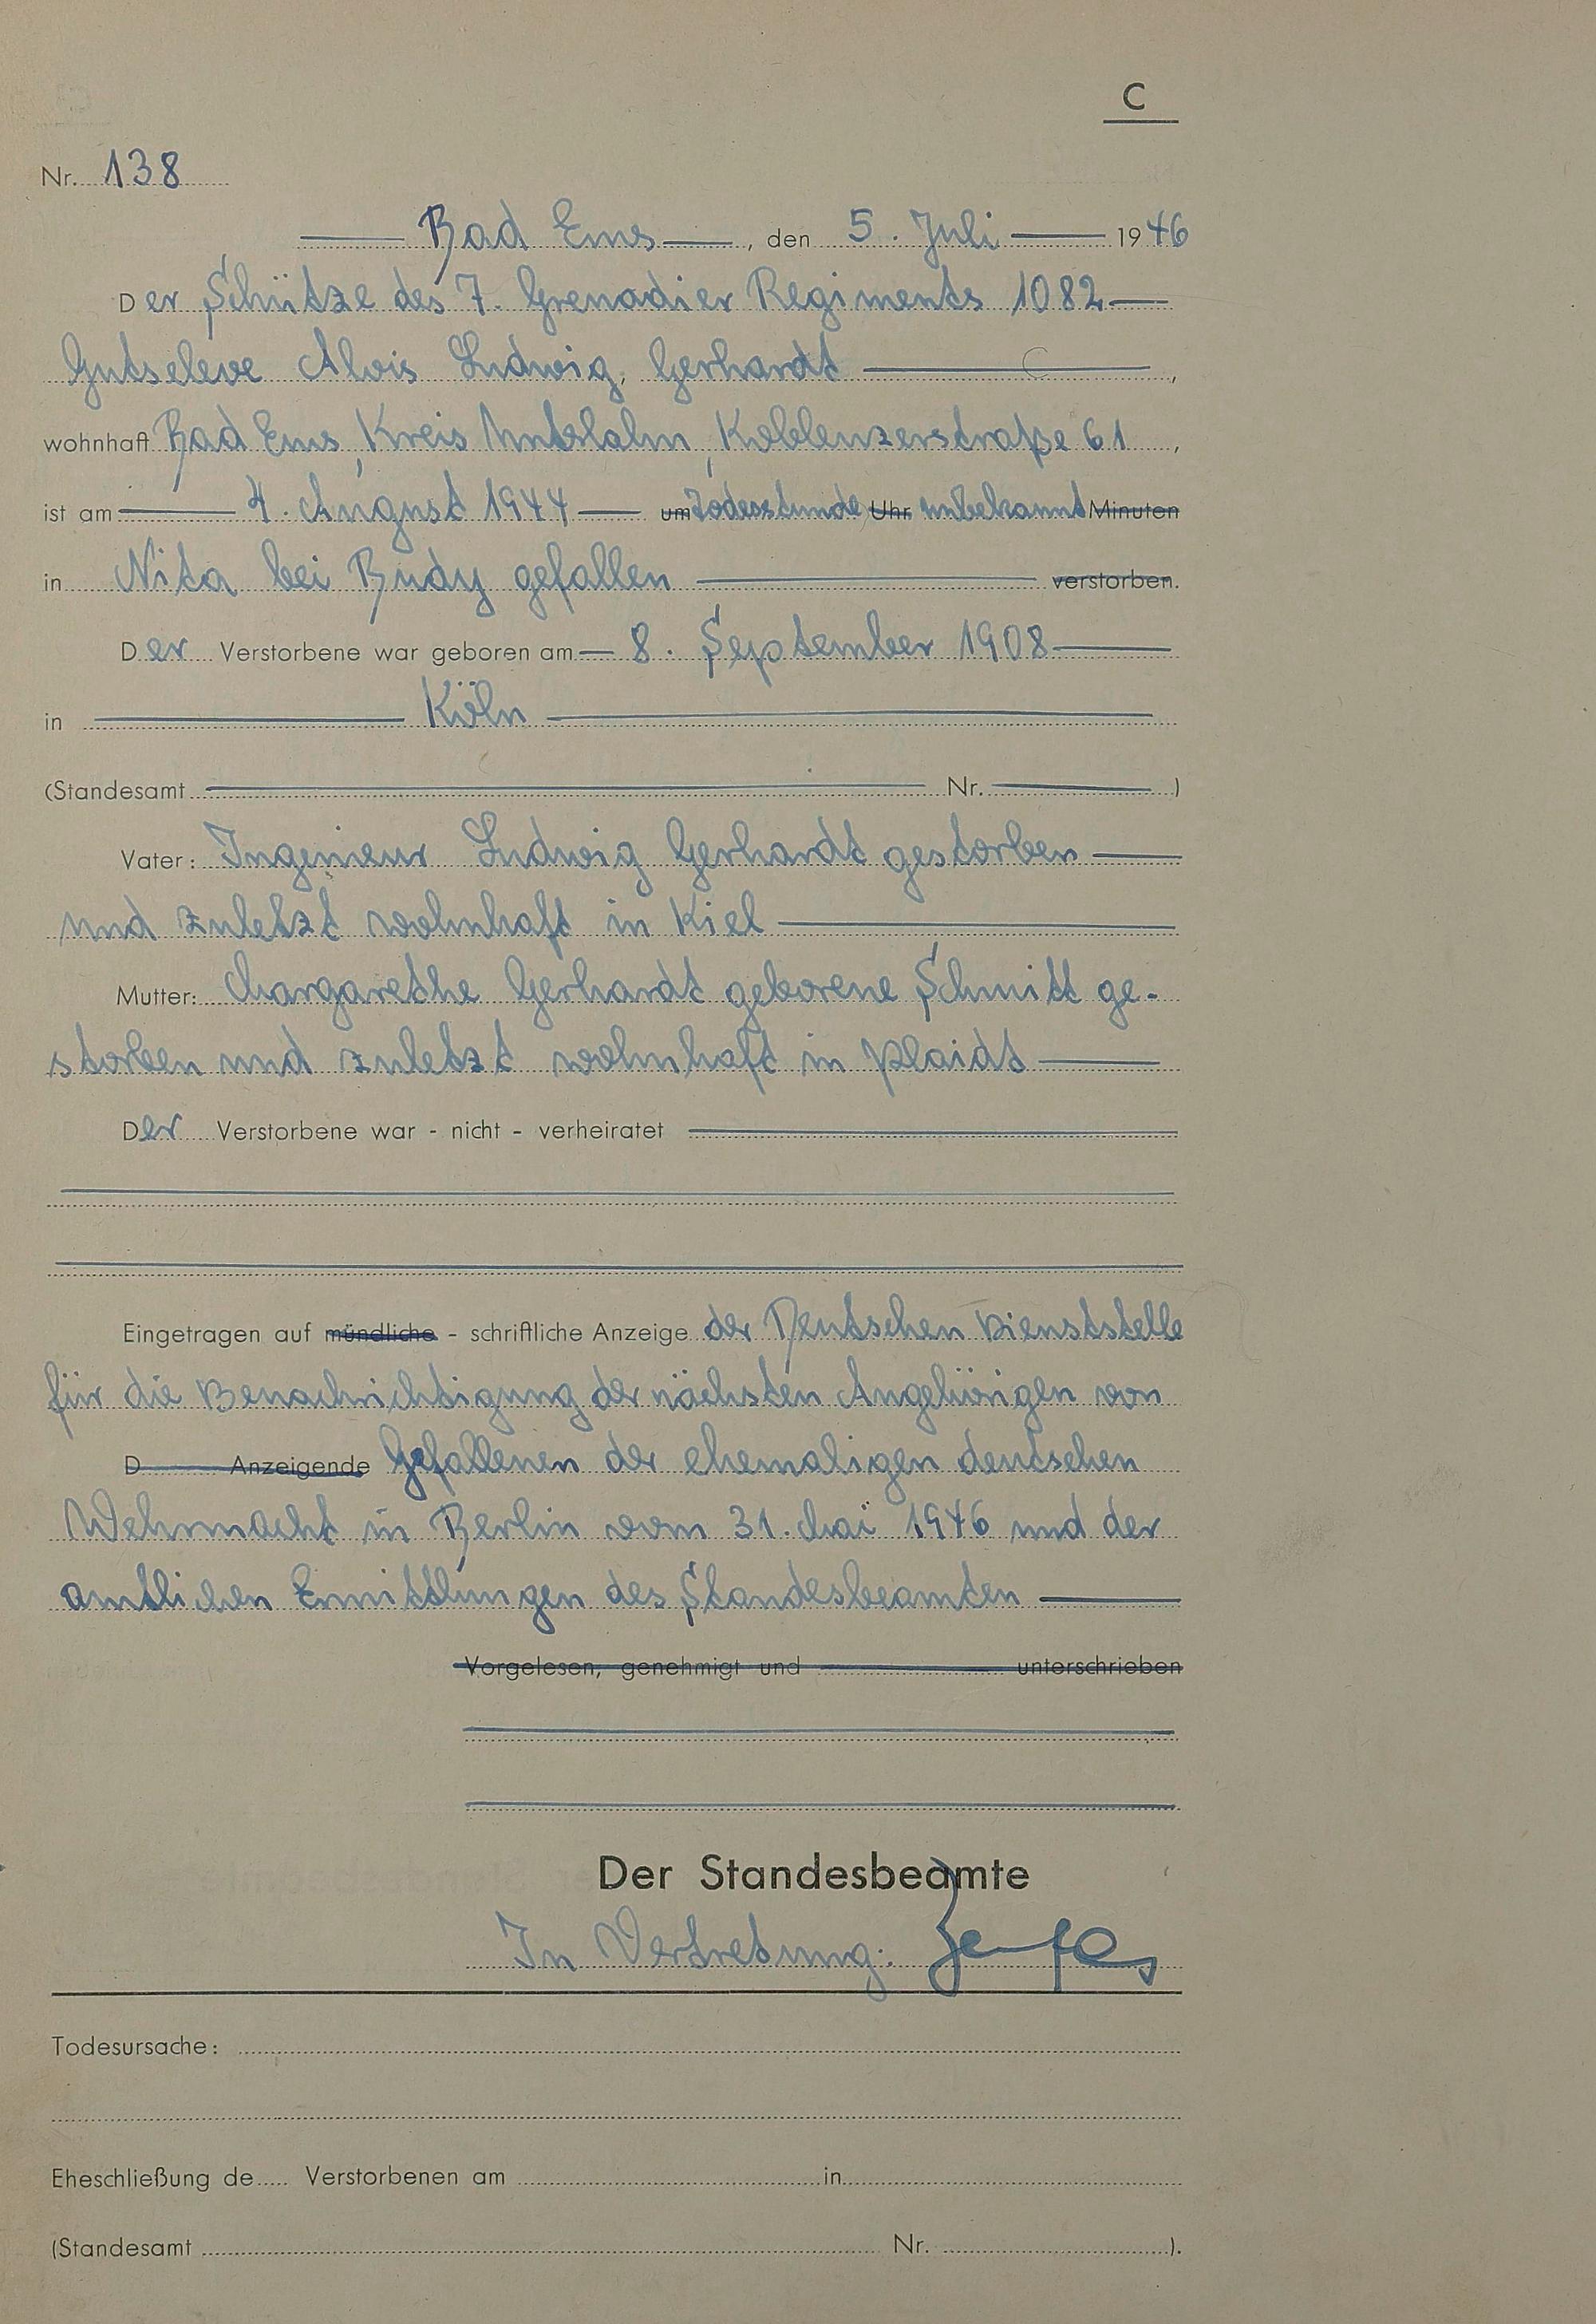 C
Nr. 138
Bad Ems, den 5. Juli 1946
Der Schütze des 7. Grenadier Regiments 1082
Gutseleve Alois Ludwig, Gerhardt,
wohnhaft Bad Ems, Kreis Unterlahn, Koblenzerstraße 61,
ist am 4. August 1944 um Todesstunde Uhr unbekannt Minuten
in Nita bei Budy gefallen verstorben.
Der Verstorbene war geboren am 8. September 1908
in Köln
(Standesamt Nr. )
Vater: Ingenieur Ludwig Gerhardt gestorben
und zuletzt wohnhaft in Kiel
Mutter: Margarethe Gerhardt geborene Schmitt ge-
storben und zuletzt wohnhaft in Plaidt
Der Verstorbene war - nicht - verheiratet
Eingetragen auf mündliche - schriftliche Anzeige der Deutschen Dienststelle
für die Benachrichtigung der nächsten Angehörigen von
D Anzeigende Gefallenen der ehemaligen deutschen
Wehrmacht in Berlin vom 31. Mai 1946 und der
amtlichen Ermittlungen des Standesbeamten
Vorgelesen, genehmigt und unterschrieben
Der Standesbeamte
In Vertretung:
Todesursache:
Eheschließung de Verstorbenen am in
(Standesamt Nr. ).